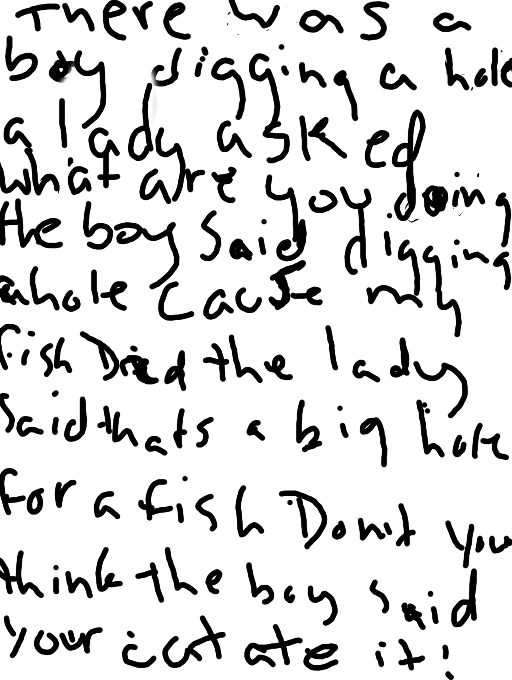 There was a
boy digging a hole
a lady asked
what are you doing
the boy said digging
ahole cause my
fish Died the lady
said thats a big hole
for a fish Dont you
think the boy said
your cat ate it!